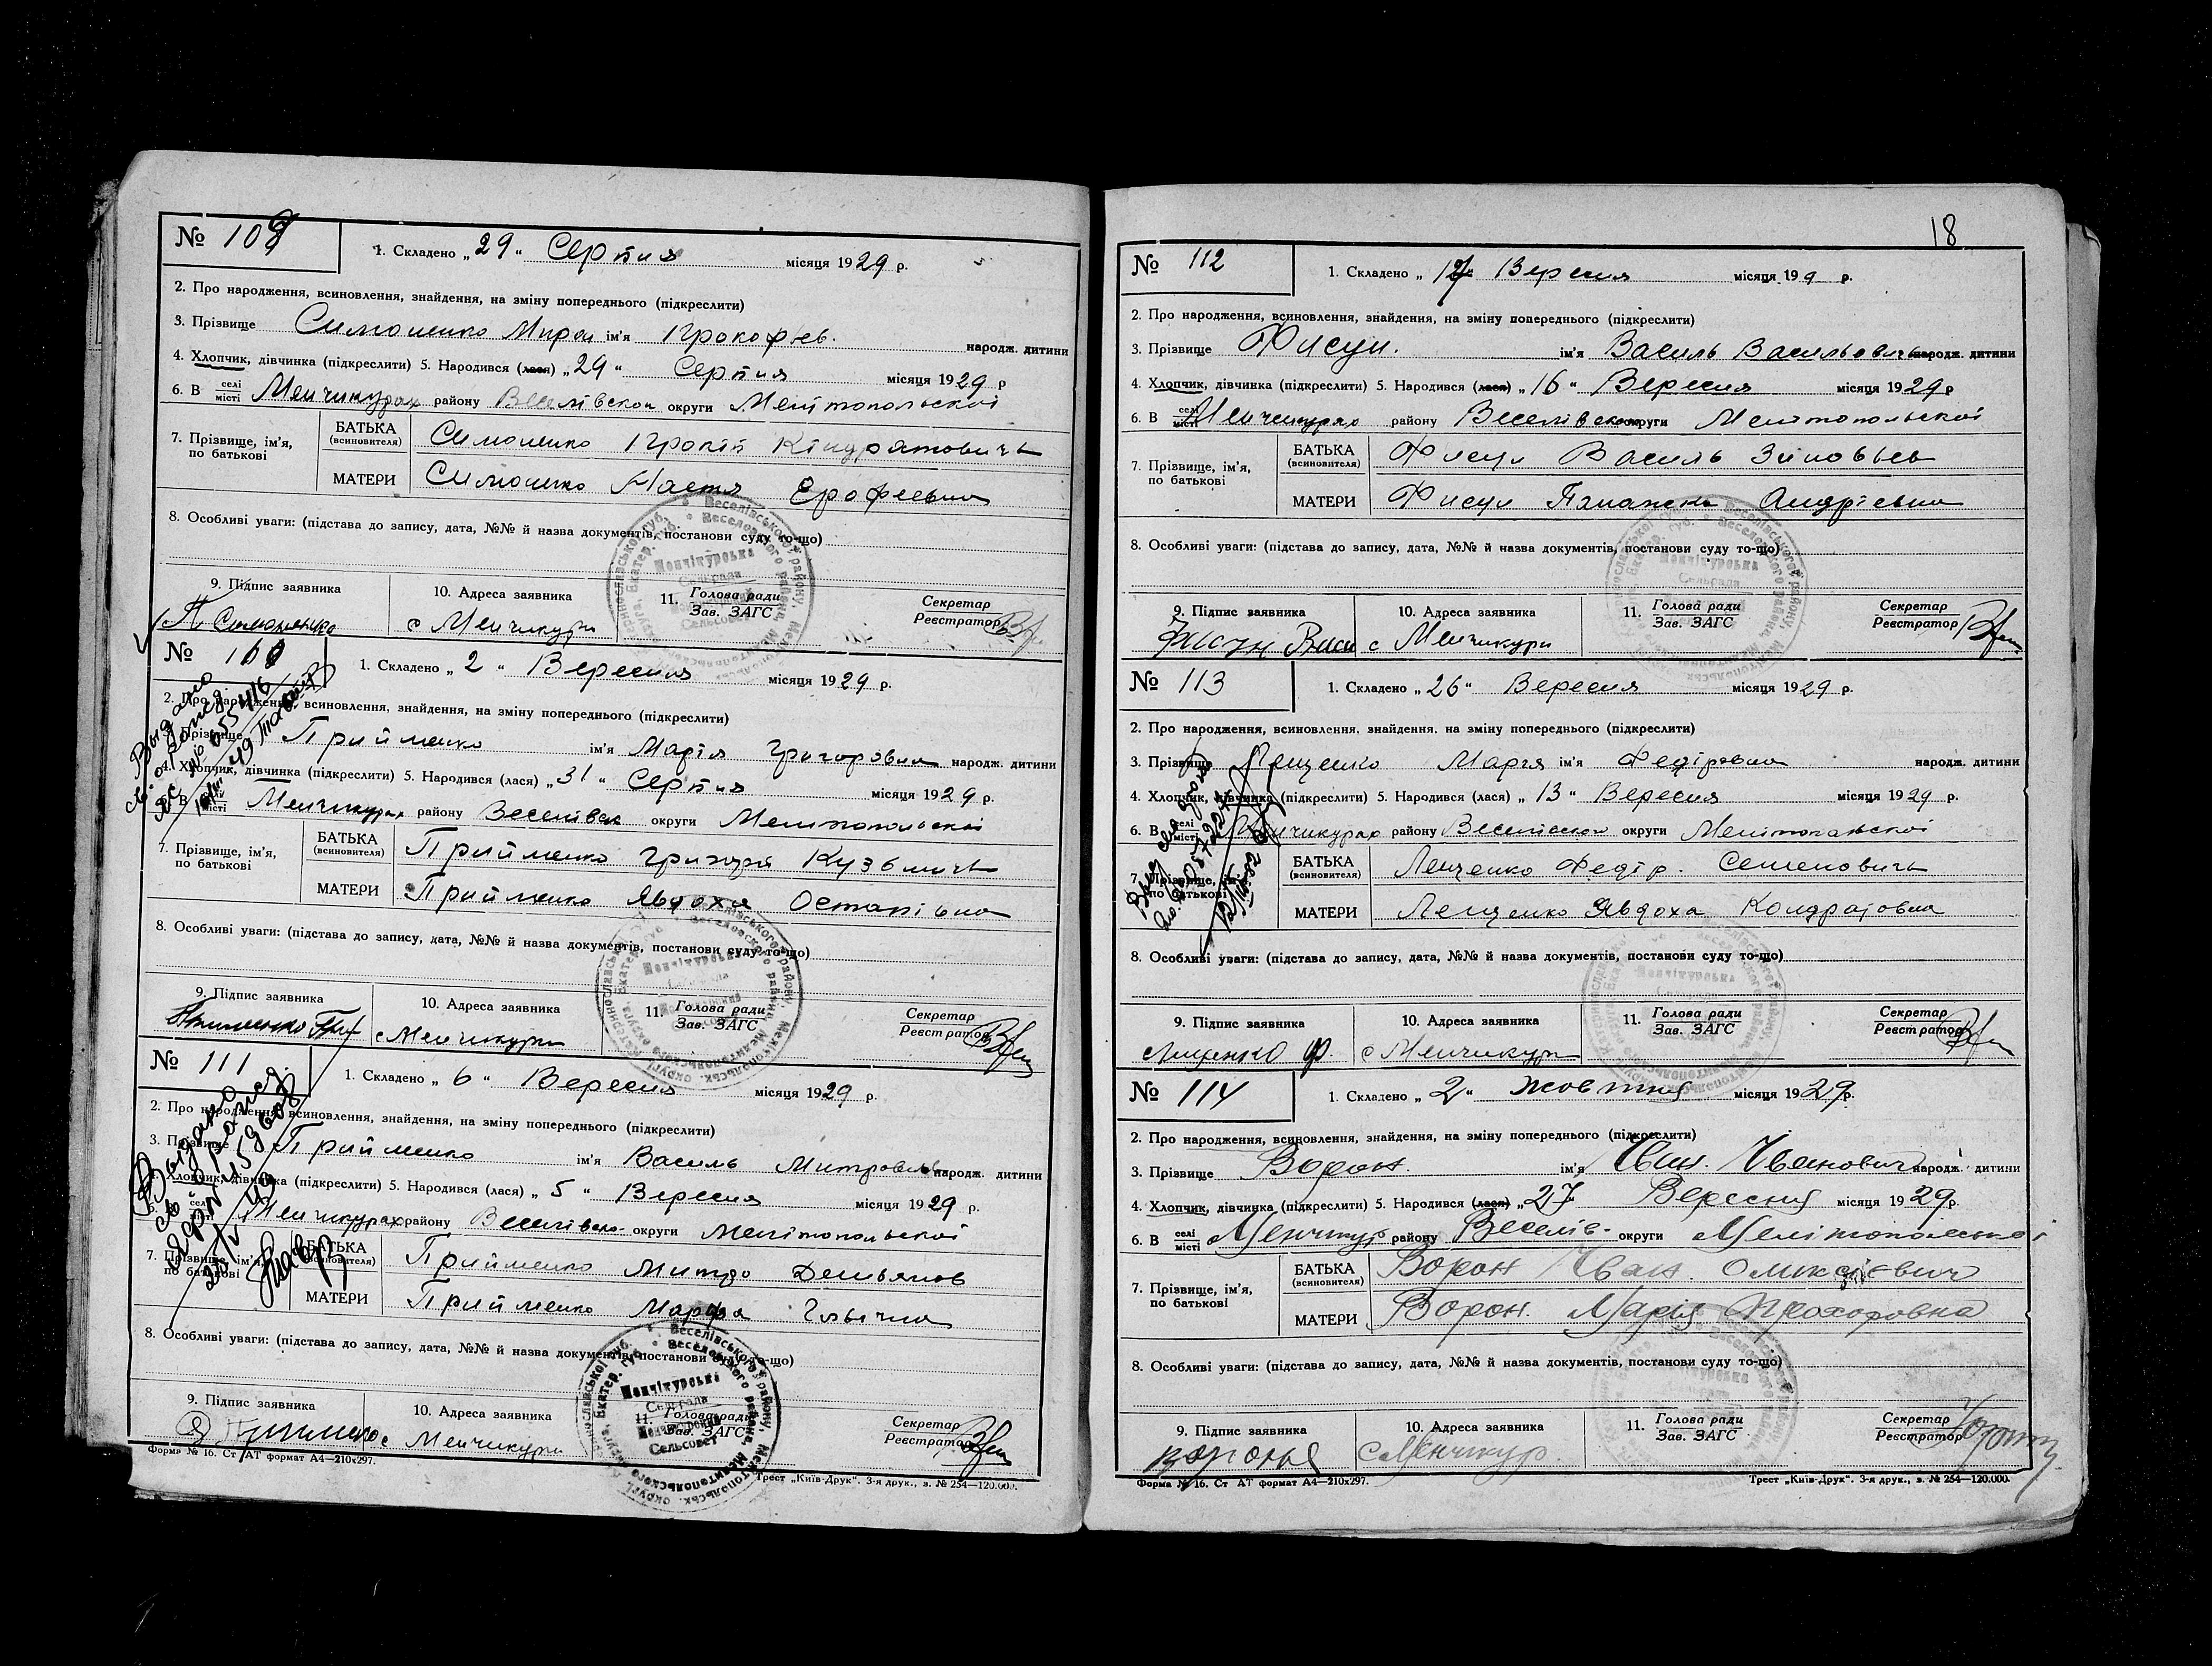 № 109
1. Складено „29“ Серпня місяця 1929 р.
2. Про народження, всиновлення, знайдення, на зміну попереднього (підкреслити)
3. Прізвище Симоненко Мирон ім'я Прокофіев. народж. дитини
4. Хлопчик, дівчинка (підкреслити) 5. Народився (лася) „29“ Серпня місяця 1929 р
6. В селі місті Менчикурах району Веселівском округи Мелітопольскої
7. Прізвище, ім'я, по батькові
БАТЬКА (всиновителя) Симоненко Прокіп Кіндратовичь
МАТЕРИ Симоненко Настя Ерофеевна
8. Особливі уваги: (підстава до запису, дата, №№ й назва документів, постанови суду то-що)
9. Підпис заявника 10. Адреса заявника 11. Голова ради Зав. ЗАГС Секретар Реєстратор
П Симоненко с Менчикури
№ 110
1. Складено „2“ Вересня місяця 1929 р.
2. Про народження, всиновлення, знайдення, на зміну попереднього (підкреслити)
3. Прізвище Прийменко ім'я Марія Григоровна народж. дитини
4. Хлопчик, дівчинка (підкреслити) 5. Народився (лася) „31“ Серпня місяця 1929 р.
6. В селі місті Менчикурах району Веселівск округи Мелітопольскої
7. Прізвище, ім'я, по батькові
БАТЬКА (всиновителя) Прийменко Григоря Кузьмичь
МАТЕРИ Прийменко Явдоха Остапівна
8. Особливі уваги: (підстава до запису, дата, №№ й назва документів, постанови суду то-що)
9. Підпис заявника 10. Адреса заявника 11. Голова ради Зав. ЗАГС Секретар Реєстратор
с Менчикури
№ 111
1. Складено „6“ Вересня місяця 1929 р.
2. Про народження, всиновлення, знайдення, на зміну попереднього (підкреслити)
3. Прізвище Прийменко ім'я Василь Митровичь народж. дитини
4. Хлопчик, дівчинка (підкреслити) 5. Народився (лася) „5“ Вересня місяця 1929 р.
6. В селі місті Менчикурах району Веселівско округи Мелітопольскої
7. Прізвище, ім'я, по батькові
БАТЬКА (всиновителя) Прийменко Митро Демьянов
МАТЕРИ Прийменко Марфа Ільїчна
8. Особливі уваги: (підстава до запису, дата, №№ й назва документів, постанови суду то-що)
9. Підпис заявника 10. Адреса заявника 11. Голова ради Зав. ЗАГС Секретар Реєстратор
с Менчикури
Форма № 16. Ст АТ формат А4—210х297. Трест „Київ-Друк“. 3-я друк., з. № 254—120.000.
18
№ 112
1. Складено „17“ Вересня місяця 199 р.
2. Про народження, всиновлення, знайдення, на зміну попереднього (підкреслити)
3. Прізвище Фисун. ім'я Василь Васильовичь народж. дитини
4. Хлопчик, дівчинка (підкреслити) 5. Народився (лася) „16“ Вересня місяця 1929 р
6. В селі місті Менчикурах району Веселівском округи Мелітопольскої
7. Прізвище, ім'я, по батькові
БАТЬКА (всиновителя) Фисун Василь Зіновьев
МАТЕРИ Фисун Палажка Андрієвна
8. Особливі уваги: (підстава до запису, дата, №№ й назва документів, постанови суду то-що)
9. Підпис заявника 10. Адреса заявника 11. Голова ради Зав. ЗАГС Секретар Реєстратор
Фисун Васи с Менчикури
№ 113
1. Складено „26“ Вересня місяця 1929 р.
2. Про народження, всиновлення, знайдення. на зміну попереднього (підкреслити)
3. Прізвище Лещенко Марія ім'я Федіровна народж. дитини
4. Хлопчик, дівчинка (підкреслити) 5. Народився (лася) „13“ Вересня місяця 1929 р.
6. В селі місті Менчикурах району Веселівском округи Мелітопольскої
7. Прізвище, ім'я, по батькові
БАТЬКА (всиновителя) Лещенко Федір. Семеновичь
МАТЕРИ Лещенко Явдоха Кондратовна
8. Особливі уваги: (підстава до запису, дата, №№ й назва документів, постанови суду то-що)
9. Підпис заявника 10. Адреса заявника 11. Голова ради Зав. ЗАГС Секретар Реєстратор
Лищенко Ф. с Менчикури
№ 114
1. Складено „2“ жовтня місяця 1929р.
2. Про народження, всиновлення, знайдення, на зміну попереднього (підкреслити)
3. Прізвище Ворон. ім'я Іван. Іванович народж. дитини
4. Хлопчик, дівчинка (підкреслити) 5. Народився (лася) „27 Вересня місяця 1929р.
6. В селі місті Менчикур району Веселів- округи Мелітопольської
7. Прізвище, ім'я, по батькові
БАТЬКА (всиновителя) Ворон Іван. Оликсієвич
МАТЕРИ Ворон. Марія Прохоровна
8. Особливі уваги: (підстава до запису, дата, №№ й назва документів, постанови суду то-що)
9. Підпис заявника 10. Адреса заявника 11. Голова ради Зав. ЗАГС Секретар Реєстратор
с Менчикур.
Форма № 16. Ст АТ формат А4—210х297. Трест „Київ-Друк“. 3-я друк., з. № 254—120.000.